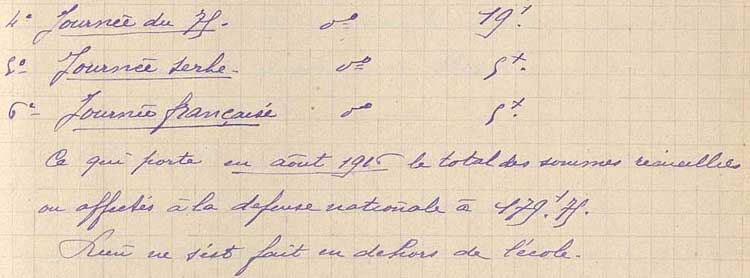 4° Journée du 75. d° 19f
5° Journée serbe. d° 5f.
6° Journée française d° 5f.
Ce qui porte en août 1916 le total des sommes recueillies
ou affectés à la defense nationale à 479f.75.
Rien ne s'est fait en dehors de l'école.